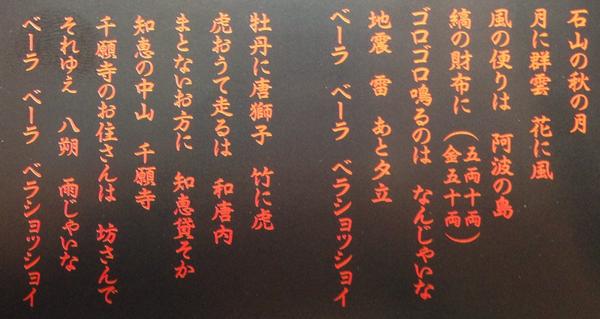 石山の秋の月
月に群雲　花に風
風の便りは　阿波の島
縞の財布に（五両十両）（金五十両）
ゴロゴロ鳴るのは　なんじゃいな
地震　雷　あと夕立
ベーラ　ベーラ　ベラショッショイ
牡丹に唐獅子　竹に虎
虎おうて走るは　和唐内
まとないお方に　知恵貸そか
知恵の中山　千願寺
千願寺のお住さんは　坊さんで
それゆえ　八朔　雨じゃいな
ベーラ　ベーラ　ベラショッショイ